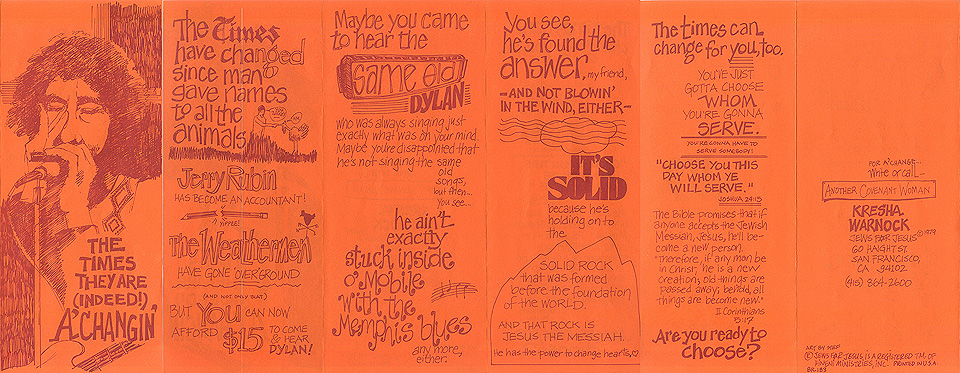 THE
TIMES
THEY ARE
(INDEED!)
A'CHANGIN'
The Times
have changed
since man
gave names
to all the
animals
Jerry Rubin
HAS BECOME AN ACCOUNTANT!
A YIPPIE!
The Weathermen
HAVE GONE 'OVERGROUND
(AND NOT ONLY THAT)
BUT YOU CAN NOW
AFFORD $15 TO COME
& HEAR
DYLAN!
Maybe you came
to hear the
same old
DYLAN
who was always singing just
exactly what was on your mind.
Maybe you're disappointed that
he's not singing the same
old
songs,
but then...
you see...
he ain't
exactly
stuck inside
o' Mobile
with the
Memphis blues
any more,
either.
You see,
he's found the
answer, my friend,
—AND NOT BLOWIN'
IN THE WIND, EITHER—
IT'S
SOLID
because he's
holding on to
the
SOLID ROCK
that was formed
before the foundation
of the WORLD.
AND THAT ROCK IS
JESUS THE MESSIAH.
He has the power to change hearts,
The times can
change for you, too.
YOU'VE JUST
GOTTA CHOOSE
WHOM
YOU'RE GONNA
SERVE.
YOU'RE GONNA HAVE TO
SERVE SOMEBODY!
"CHOOSE YOU THIS
DAY WHOM YE
WILL SERVE."
JOSHUA 24:15
The Bible promises that if
anyone accepts the Jewish
Messiah, Jesus, he'll be-
come a new person.
"Therefore, if any man be
in Christ, he is a new
creation; old things are
passed away; behold, all
things are become new."
II Corinthians
5:17
Are you ready to
choose?
FOR A 'CHANGE—
write or call—
ANOTHER COVENANT WOMAN
KRESHA
WARNOCK
JEWS FOR JESUS ©1979
60 HAIGHT ST.
SAN FRANCISCO,
CA 94102
(415) 864-2600
ART BY
© JEWS FOR JESUS IS A REGISTERED T.M. OF
HINENI MINISTRIES, INC. PRINTED IN U.S.A.